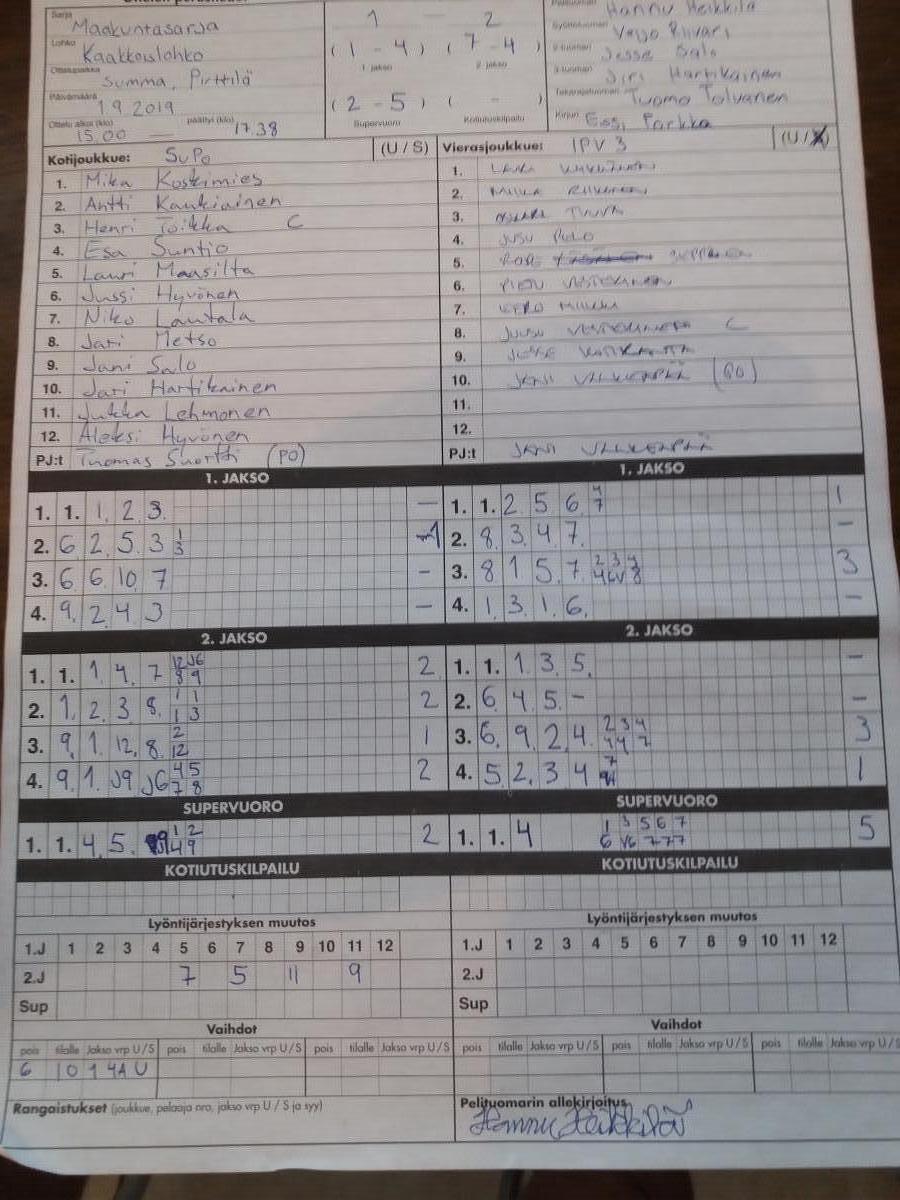 Sarja Maakuntasarja
1 — 2
Hannu Heikkilä
Lohko Kaakkoislohko
(1 - 4) (7 - 4)
Veijo Piivari
1. jakso 2. jakso
Jesse Salo
Ottelupaikka Summa, Pirttilä
Jiri Hartikainen
Päivämäärä 1.9.2019
(2 - 5) ( - )
Tuomo Tolvanen
Ottelu alkoi (klo) 15.00 — päättyi (klo) 17.38
Supervuoro Kotiutuskilpailu
Kirjuri Essi Parkka
Kotijoukkue: SuPo (U / S)
Vierasjoukkue: IPV 3 (U / X)
1. Mika Koskimies
2. Antti Kaukiainen
3. Henri Toikka C
4. Esa Suntio
5. Lauri Maasilta
6. Jussi Hyvönen
7. Niko Lautala
8. Jari Metso
9. Jani Salo
10. Jari Hartikainen
11. Jukka Lehmonen
12. Aleksi Hyvönen
PJ:t Tuomas Suortti (PO)
1.
2.
3.
4. JUSU
5.
6.
7. EERO
8. JUUSO C
9. JESSE
10. JANI VALKEAPÄÄ
11.
12.
PJ:t JANI VALKEAPÄÄ
1. JAKSO
1. 1. 1 2 3 —
2. 6 2 5 3 1 3 1
3. 6 6 10 7 -
4. 9 2 4 3 —
1. JAKSO
1. 1. 2 5 6 4 7 1
2. 8 3 4 7 -
3. 8 1 5 7 2 3 4 3
4. 1 3 1 6 -
2. JAKSO
1. 1. 1 4 7 12 J6 8 9 2
2. 1 2 3 8 1 1 1 3 2
3. 9 1 12 8 2 12 1
4. 9 1 J9 J6 4 5 7 8 2
2. JAKSO
1. 1. 1 3 5 -
2. 6 4 5 - -
3. 6 9 2 4 2 3 4 4 4 7 3
4. 5 2 3 4 7 1
SUPERVUORO
1. 1. 4 5 1 2 4 9 2
SUPERVUORO
1. 1. 4 1 3 5 6 7 6 V6 7 7 7 5
KOTIUTUSKILPAILU
KOTIUTUSKILPAILU
Lyöntijärjestyksen muutos
1.J 1 2 3 4 5 6 7 8 9 10 11 12
2.J 7 5 11 9
Sup
Lyöntijärjestyksen muutos
1.J 1 2 3 4 5 6 7 8 9 10 11 12
2.J
Sup
Vaihdot
pois tilalle Jakso vrp U / S pois tilalle Jakso vrp U / S pois tilalle Jakso vrp U / S
6 10 1 4A U
Vaihdot
pois tilalle Jakso vrp U / S pois tilalle Jakso vrp U / S pois tilalle Jakso vrp U / S
Rangaistukset (joukkue, pelaaja nro, jakso vrp U / S ja syy)
Pelituomarin allekirjoitus
Hannu Heikkilä